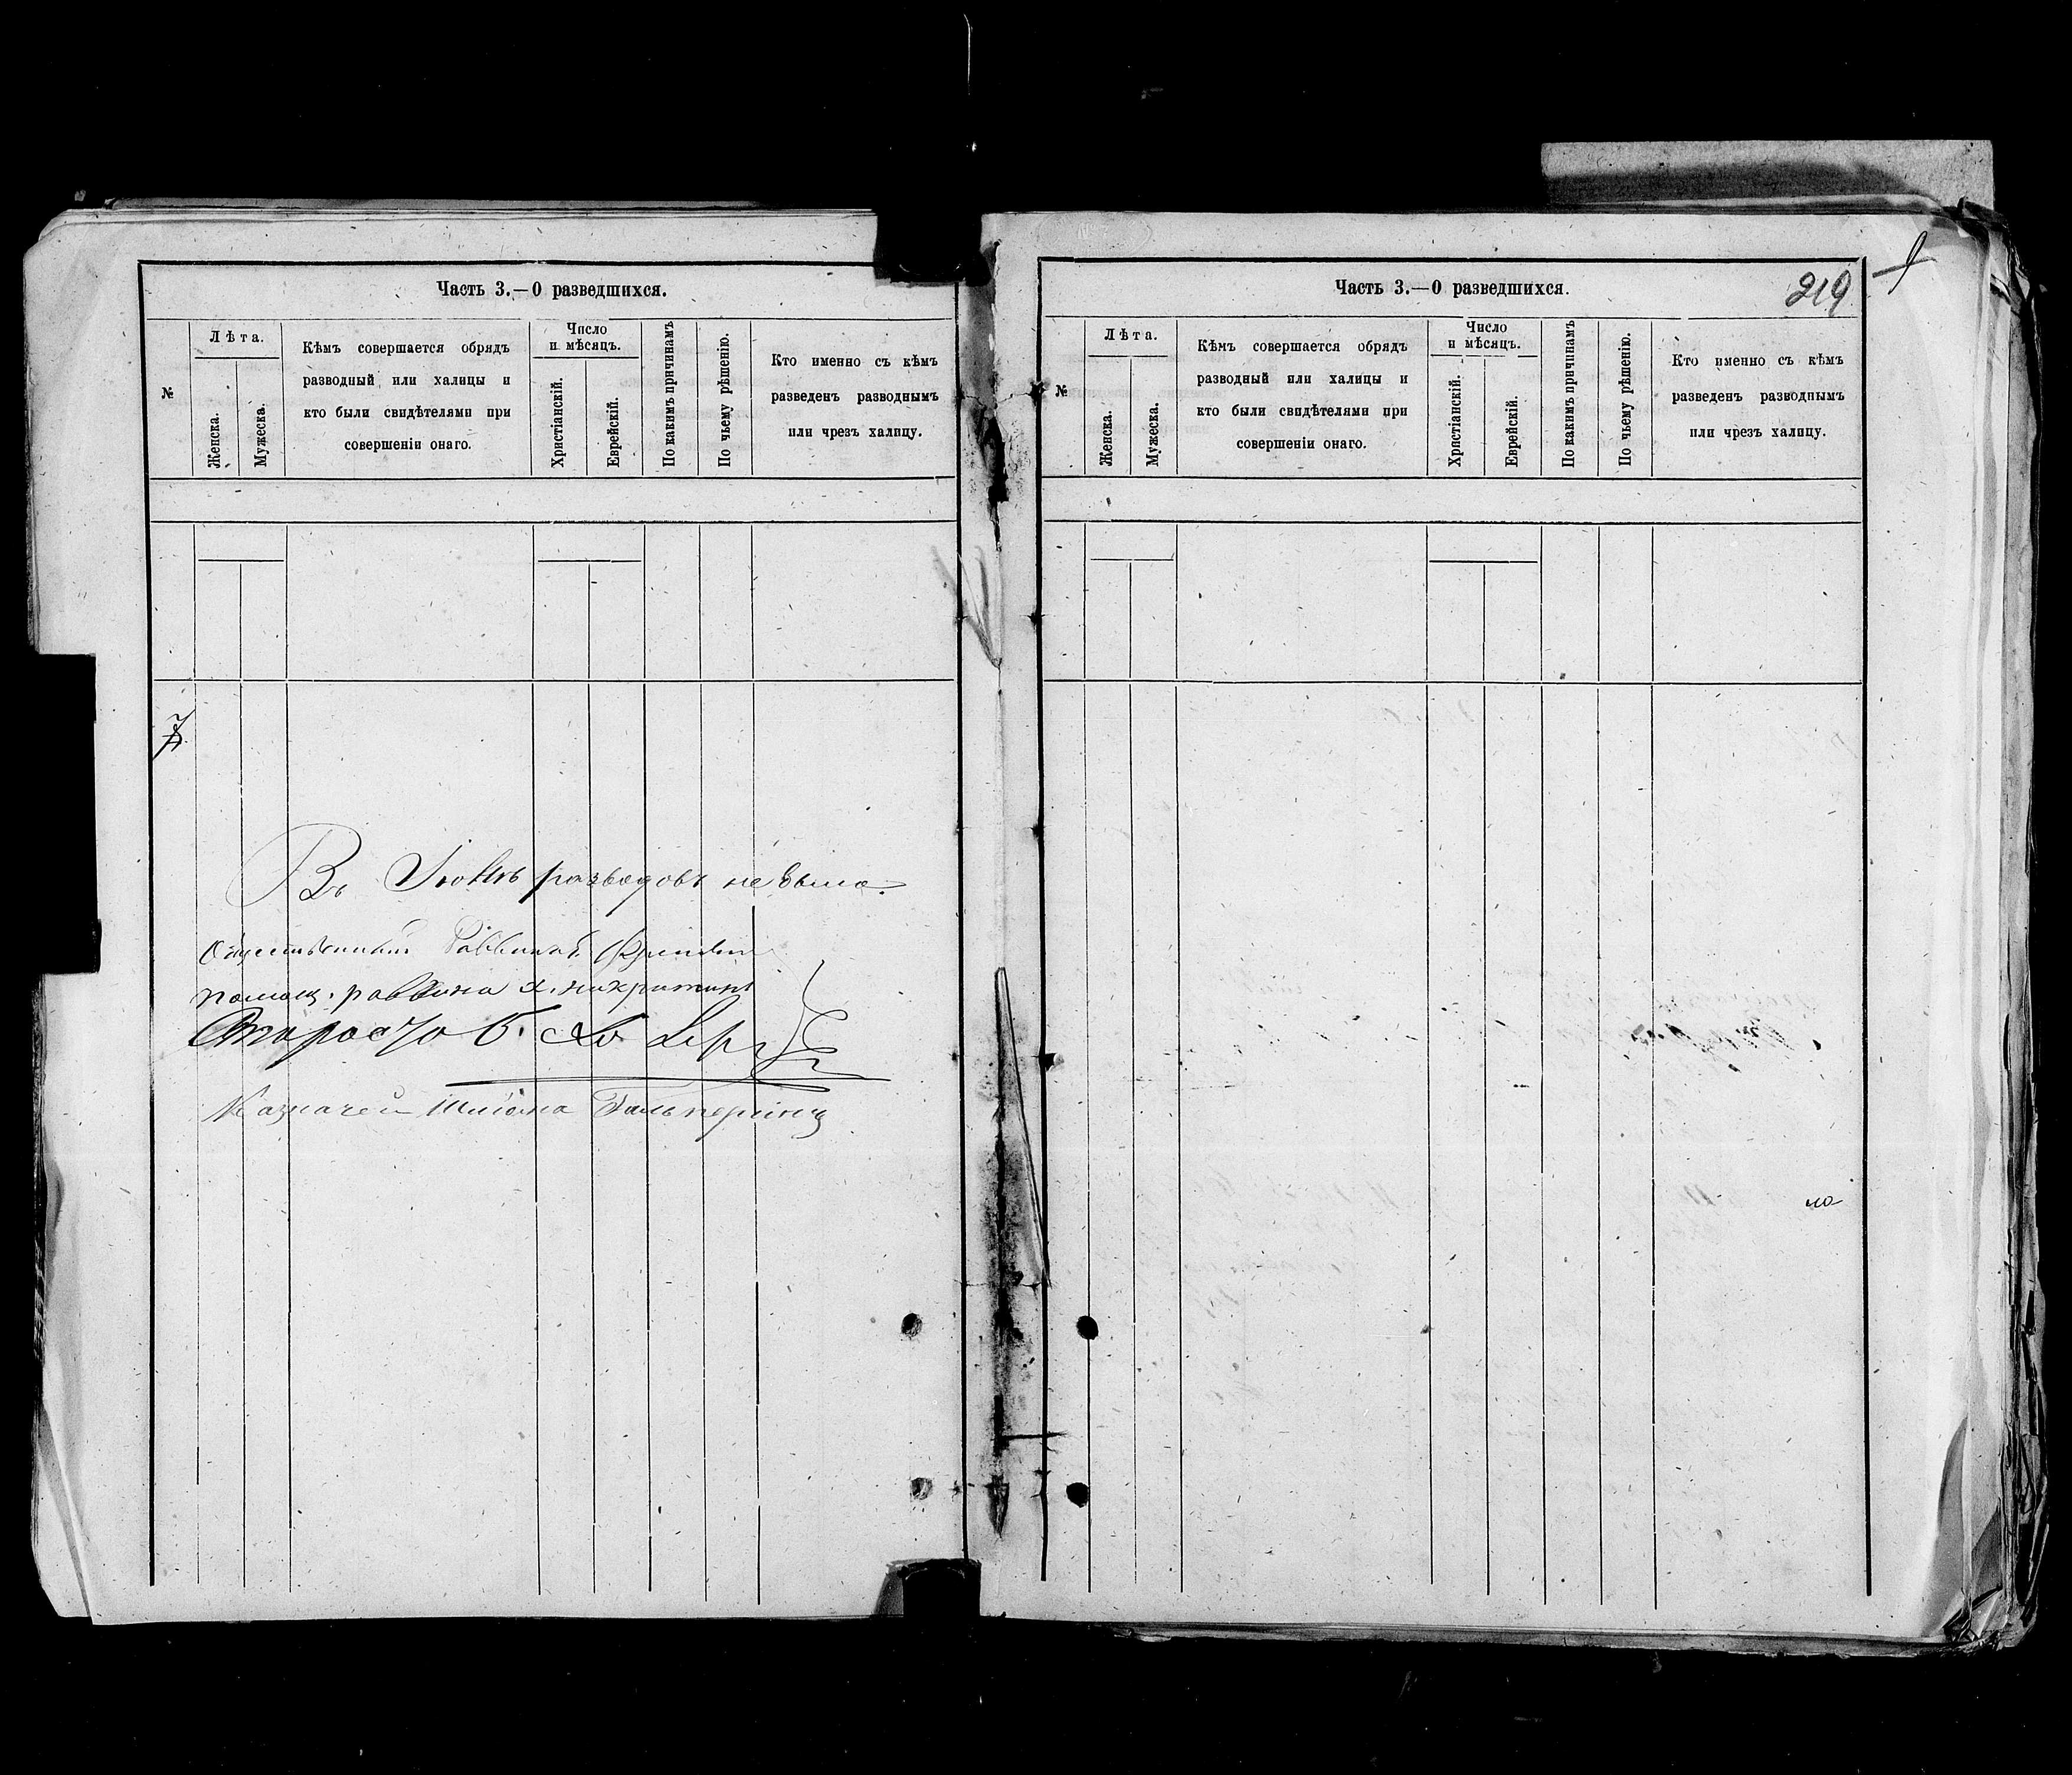 Часть 3.—О разведшихся.
№
Лѣта.
Женска.
Мужеска.
Кѣмъ совершается обрядъ
разводный или халицы и
кто были свидѣтелями при
совершеніи онаго.
Число
и мѣсяцъ.
Христіанскій.
Еврейскій.
По какимъ причинамъ
По чьему рѣшенію.
Кто именно съ кѣмъ
разведенъ разводнымъ
или чрезъ халицу.
Въ разводовъ не было.
Общественный Раввинъ
помощ. раввина х.
Староста
Казначей Гальперинъ
Часть 3.—О разведшихся.
219
№
Лѣта.
Женска.
Мужеска.
Кѣмъ совершается обрядъ
разводный или халицы и
кто были свидѣтелями при
совершеніи онаго.
Число
и мѣсяцъ.
Христіанскій.
Еврейскій.
По какимъ причинамъ
По чьему рѣшенію.
Кто именно съ кѣмъ
разведенъ разводнымъ
или чрезъ халицу.
ло